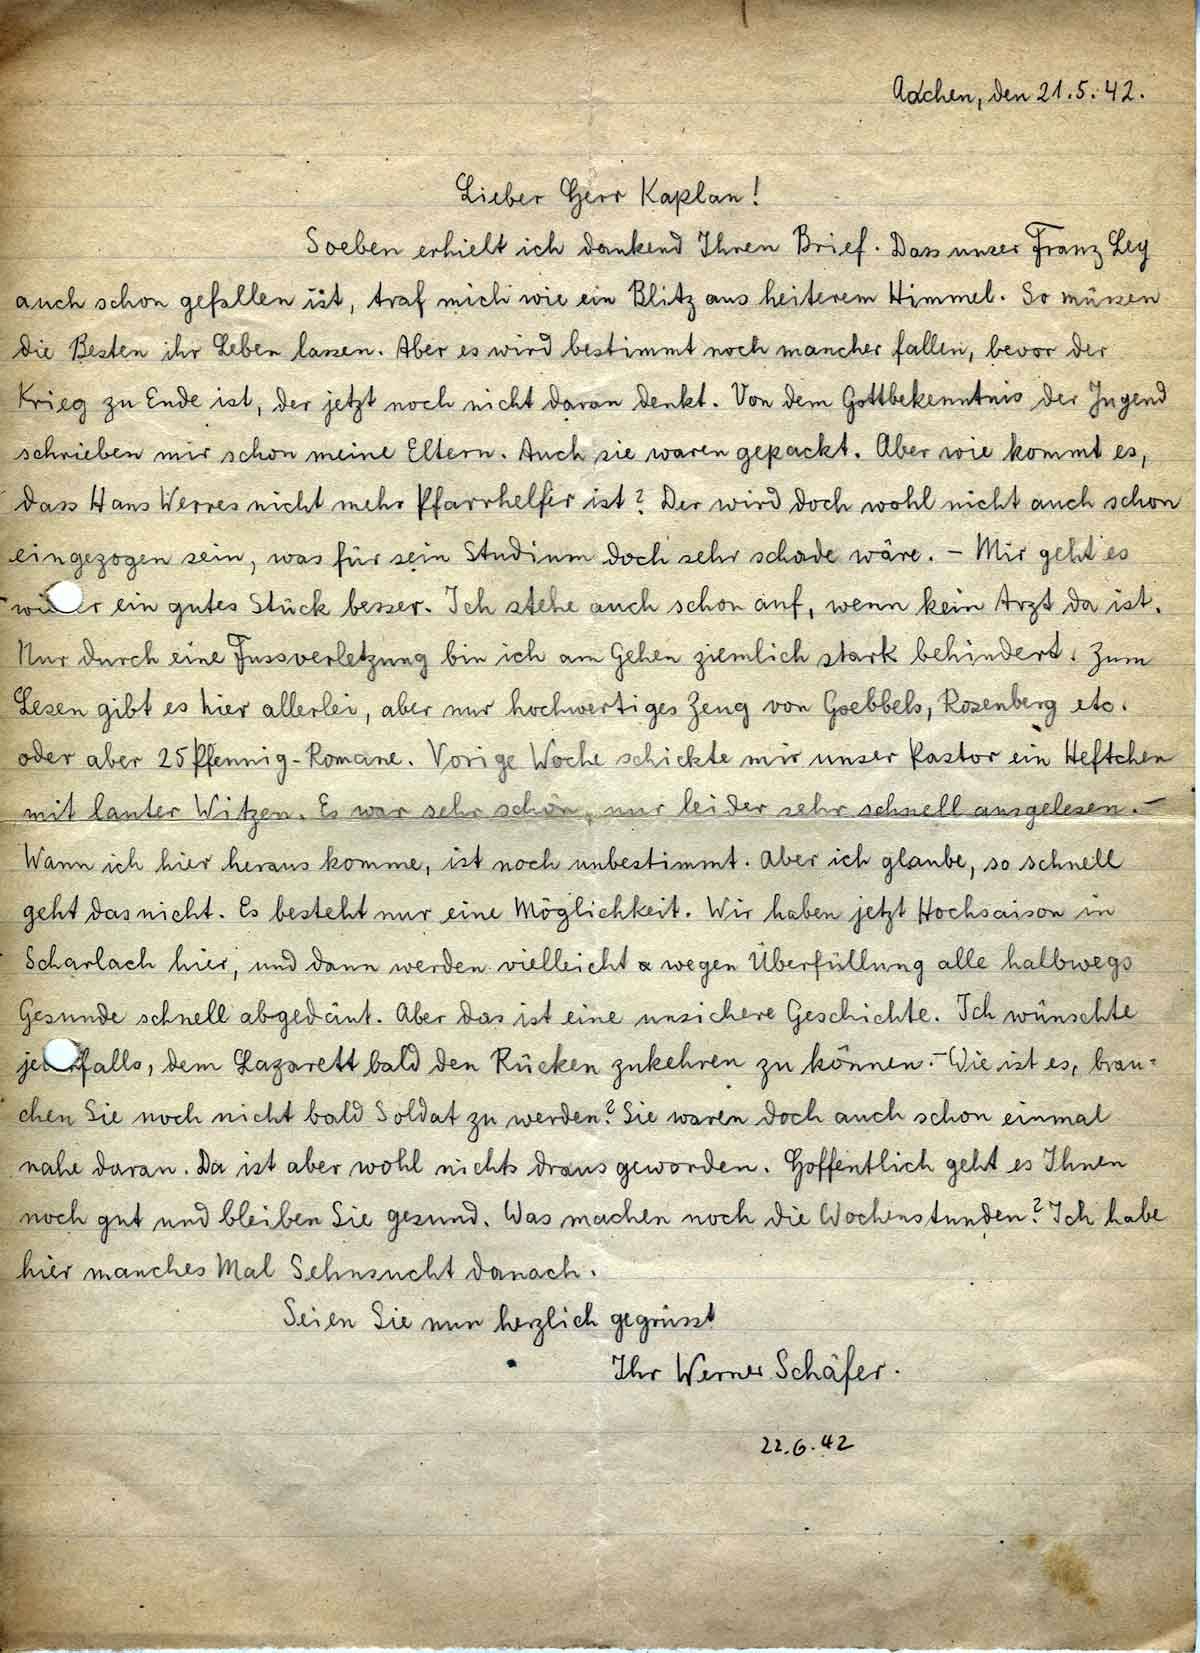 Aachen, den 21.5.42.
Lieber Herr Kaplan!
Soeben erhielt ich dankend Ihren Brief. Dass unser Franz Ley
auch schon gefallen ist, traf mich wie ein Blitz aus heiterem Himmel. So müssen
die Besten ihr Leben lassen. Aber es wird bestimmt noch mancher fallen, bevor der
Krieg zu Ende ist, der jetzt noch nicht daran denkt. Von dem Gottbekenntnis der Jugend
schrieben mir schon meine Eltern. Auch sie waren gepackt. Aber wie kommt es,
dass Hans Werres nicht mehr Pfarrhelfer ist? Der wird doch wohl nicht auch schon
eingezogen sein, was für sein Studium doch sehr schade wäre. – Mir geht es
wi er ein gutes Stück besser. Ich stehe auch schon auf, wenn kein Arzt da ist.
Nur durch eine Fussverletzung bin ich am Gehen ziemlich stark behindert. Zum
Lesen gibt es hier allerlei, aber nur hochwertiges Zeug von Goebbels, Rosenberg etc.
oder aber 25 Pfennig-Romane. Vorige Woche schickte mir unser Pastor ein Heftchen
mit lauter Witzen. Es war sehr schön, nur leider sehr schnell ausgelesen. –
Wann ich hier heraus komme, ist noch unbestimmt. Aber ich glaube, so schnell
geht das nicht. Es besteht nur eine Möglichkeit. Wir haben jetzt Hochsaison in
Scharlach hier, und dann werden vielleicht wegen Überfüllung alle halbwegs
Gesunde schnell abgedäut. Aber das ist eine unsichere Geschichte. Ich wünschte
je falls, dem Lazarett bald den Rücken zukehren zu können. – Wie ist es, brau=
chen Sie noch nicht bald Soldat zu werden? Sie waren doch auch schon einmal
nahe daran. Da ist aber wohl nichts draus geworden. Hoffentlich geht es Ihnen
noch gut und bleiben Sie gesund. Was machen noch die Wochenstunden? Ich habe
hier manches Mal Sehnsucht danach.
Seien Sie nun herzlich gegrüsst
Ihr Werner Schäfer.
22.6.42